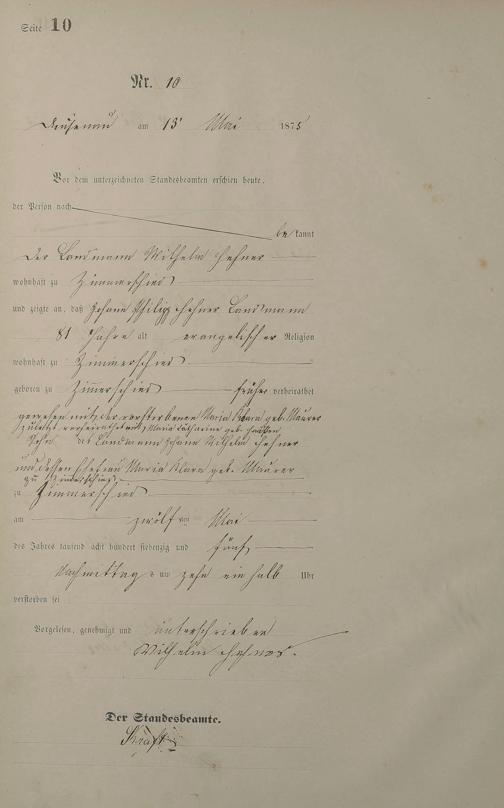 Seite 10
Nr. 10
Dausenau am 13 Mai 1875
Vor dem unterzeichneten Standesbeamten erschien heute,
der Person nach
be kannt
der Landmann Wilhelm Hehner
wohnhaft zu Zimmerschied
und zeigte an, daß Johann Philipp Hehner Landmann
81 Jahre alt evangelischer Religion
wohnhaft zu Zimmerschied
geboren zu Zimmerschied früher verheirathet
gewesen mit der verstorbenen Maria Klara geb. Maurer
zuletzt verheirathet mit Maria Katharine geb.
Sohn des Landmann Johann Wilhelm Hehner
und dessen Ehefrau Maria Klara geb. Maurer
zu Zimmerschied
zu Zimmerschied
am zwölften Mai
des Jahres tausend acht hundert siebenzig und fünf
Nachmittags um zehn ein halb Uhr
verstorben sei
Vorgelesen, genehmigt und unterschrieben
Wilhelm Hehner.
Der Standesbeamte.
Kraft